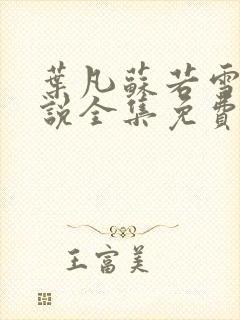 葉凡蘇若雪
說全集免費
王富美